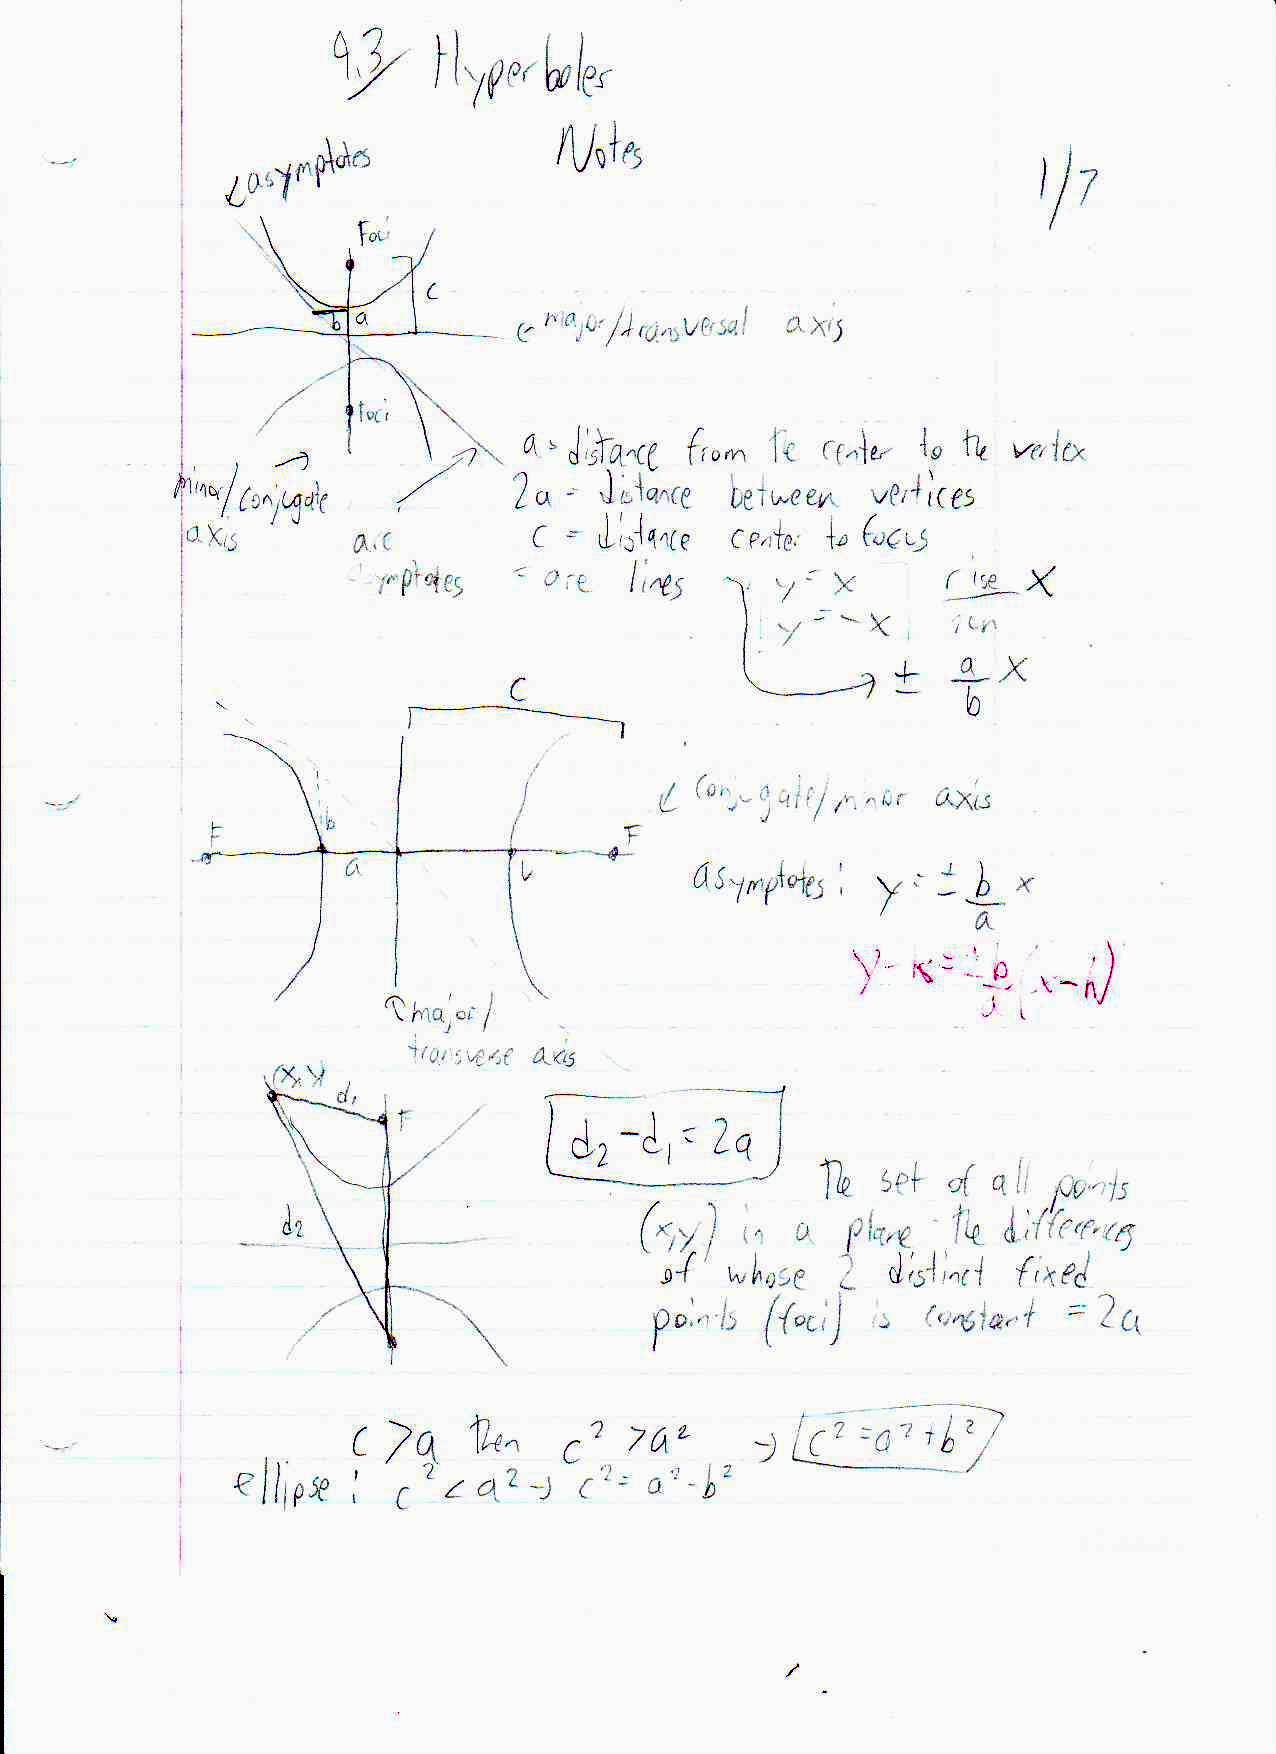 9.3 Hyperboles
Notes
1/7
asymptotes
Foci
c
b a
← major/transversal axis
foci
minor/conjugate
axis
a = distance from the center to the vertex
2a = distance between vertices
c = distance center to focus
asymptotes = are lines
y = x
y = -x
rise x
run
± a/b x
c
conjugate/minor axis
F
b
a
F
asymptotes: y = ± b/a x
y - k = ± b/a (x-h)
↑major/
transverse axis
(x, y)
d₁
F
d₂ - d₁ = 2a
d₂
The set of all points
(x,y) in a plane the differences
of whose 2 distinct fixed
points (foci) is constant = 2a
c > a then c² > a² → c² = a² + b²
ellipse: c² < a² → c² = a² - b²